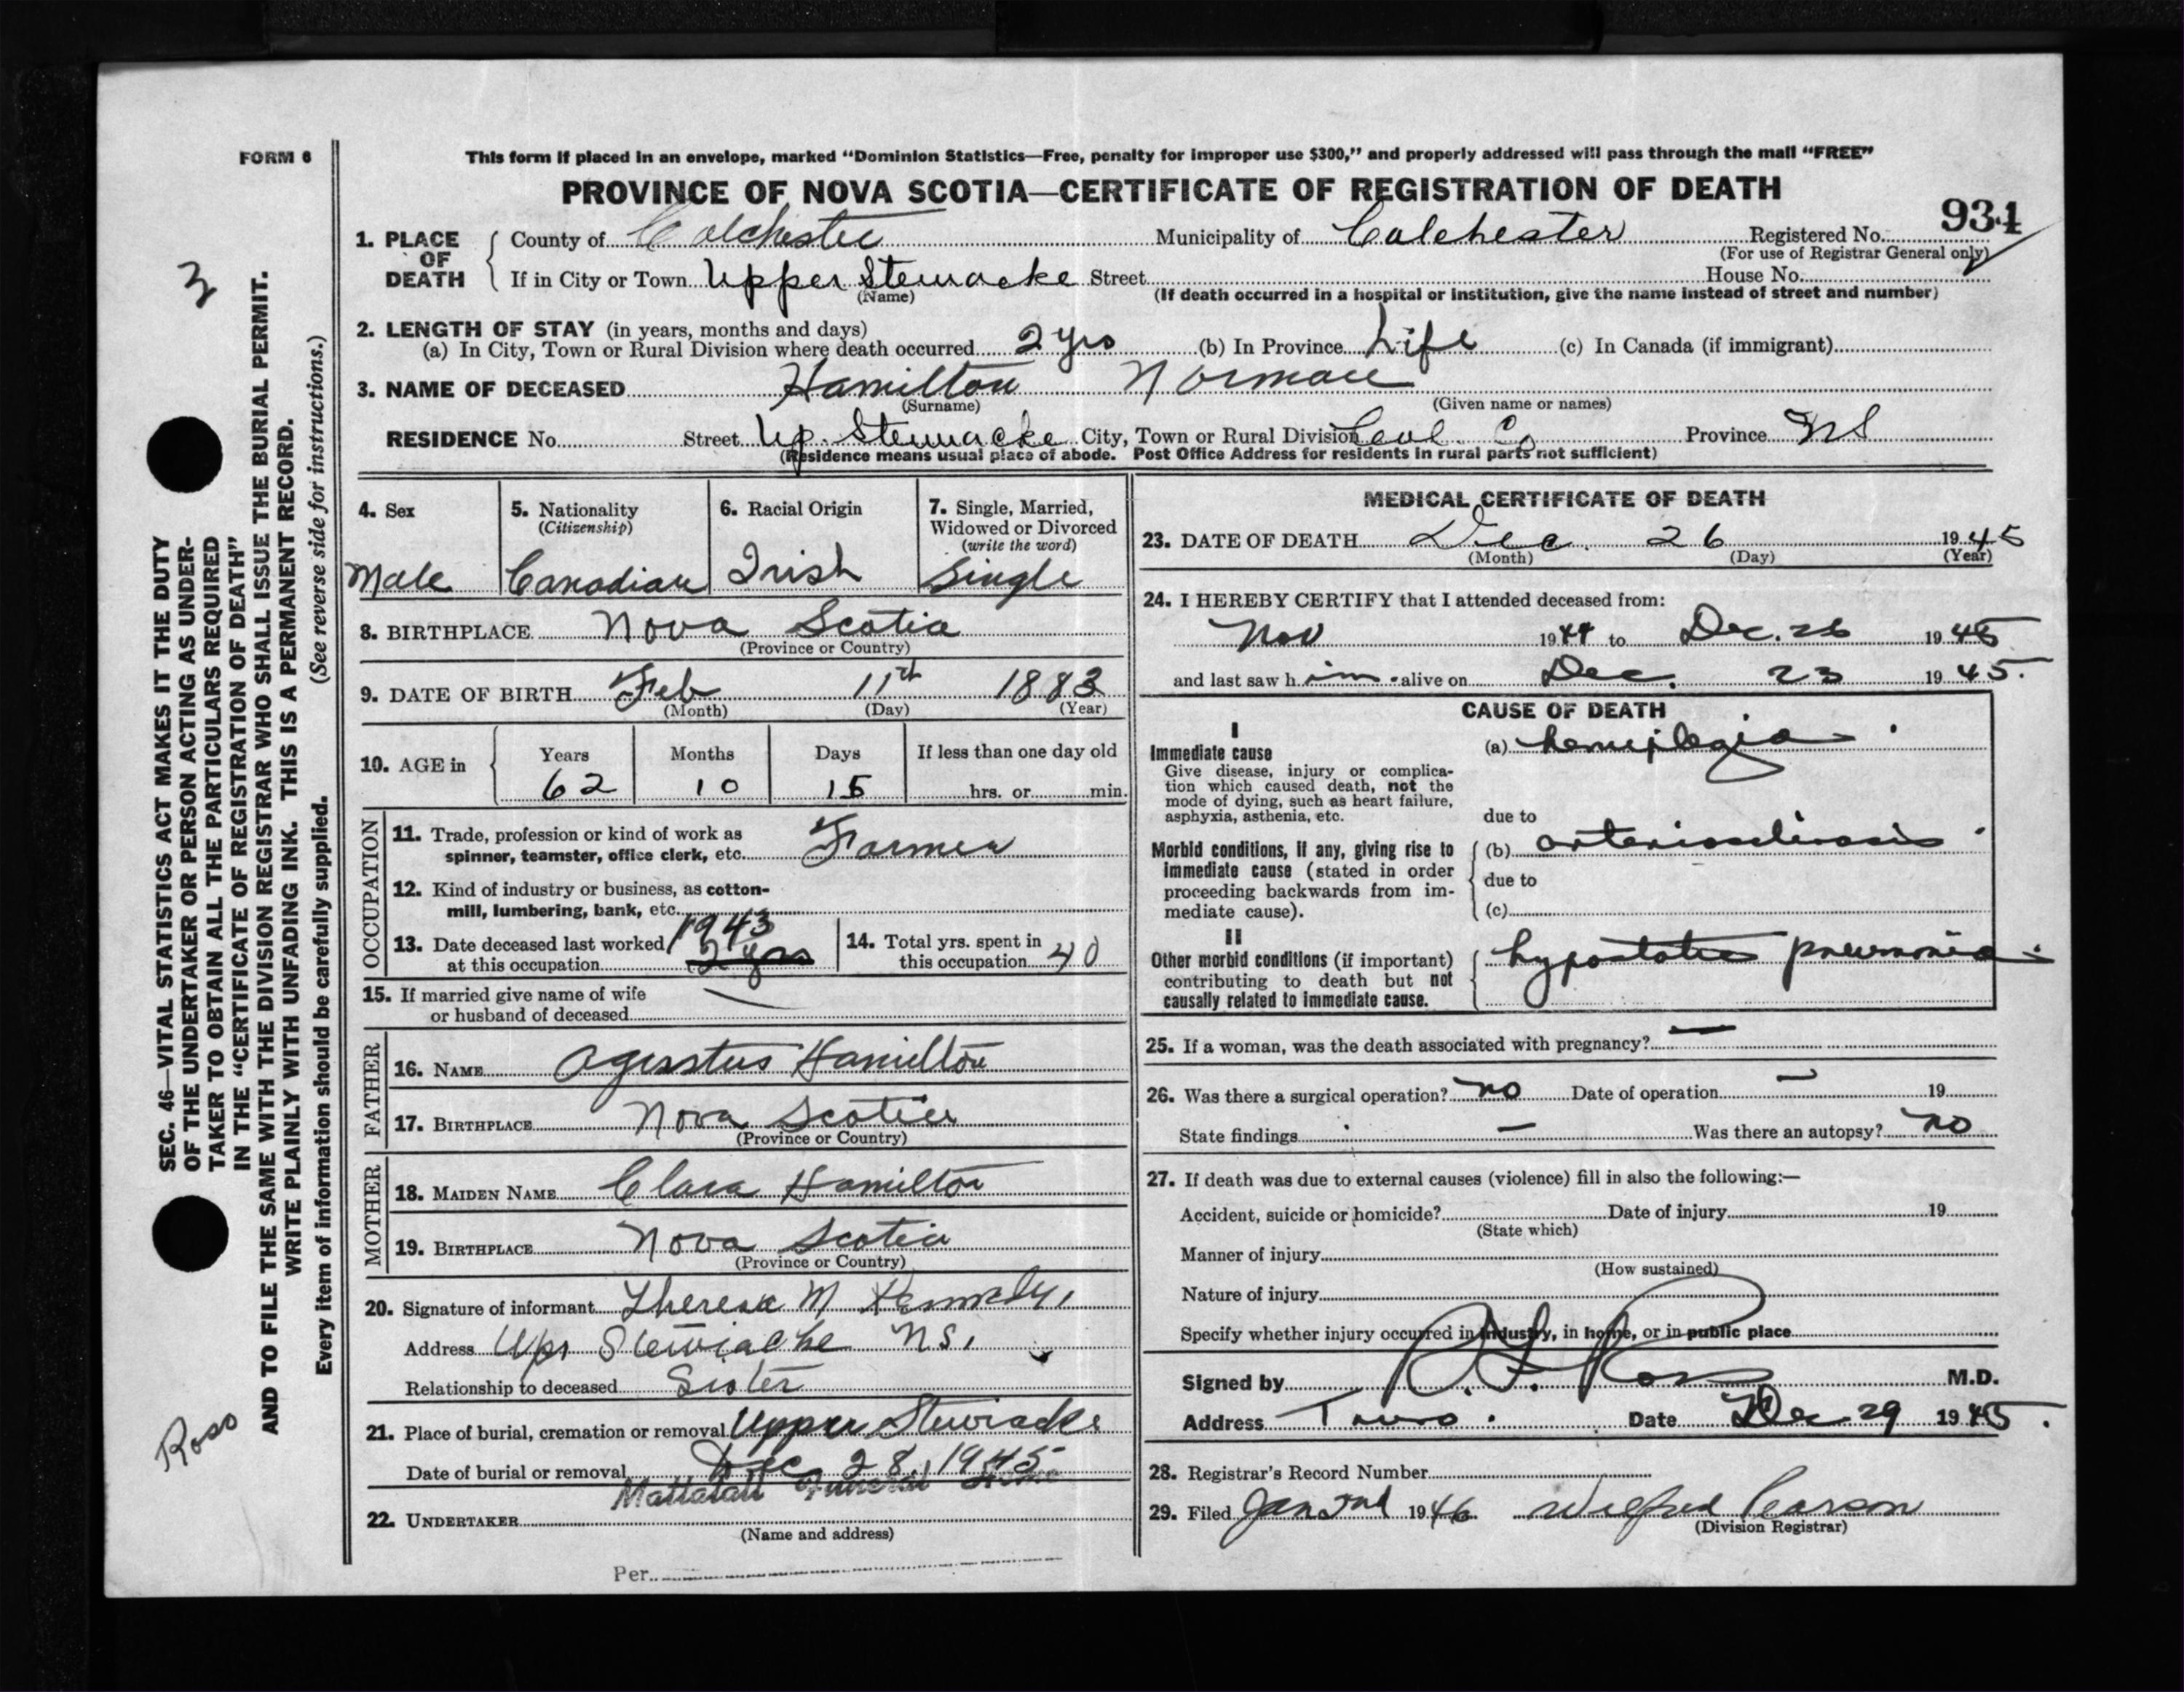 FORM 6
This form if placed in an envelope, marked “Dominion Statistics—Free, penalty for improper use $300,” and properly addressed will pass through the mail “FREE”
PROVINCE OF NOVA SCOTIA—CERTIFICATE OF REGISTRATION OF DEATH
934
1. PLACE OF DEATH County of Colchester Municipality of Colchester Registered No.
(For use of Registrar General only)
If in City or Town Upper Stewacke Street House No.
(Name) (If death occurred in a hospital or institution, give the name instead of street and number)
2. LENGTH OF STAY (in years, months and days)
(a) In City, Town or Rural Division where death occurred 2 yrs (b) In Province Life (c) In Canada (if immigrant)
3. NAME OF DECEASED Hamilton Norman
(Surname) (Given name or names)
RESIDENCE No. Street Up. Stewacke City, Town or Rural Division Col. Co Province NS
(Residence means usual place of abode. Post Office Address for residents in rural parts not sufficient)
4. Sex Male
5. Nationality (Citizenship) Canadian
6. Racial Origin Irish
7. Single, Married, Widowed or Divorced (write the word) Single
8. BIRTHPLACE Nova Scotia
(Province or Country)
9. DATE OF BIRTH Feb 11th 1883
(Month) (Day) (Year)
10. AGE in Years Months Days If less than one day old
62 10 15 hrs. or min.
OCCUPATION
11. Trade, profession or kind of work as
spinner, teamster, office clerk, etc. Farmer
12. Kind of industry or business, as cotton-
mill, lumbering, bank, etc.
13. Date deceased last worked 1943
at this occupation 2 yrs
14. Total yrs. spent in
this occupation 40
15. If married give name of wife
or husband of deceased
FATHER
16. NAME Agusstus Hamilton
17. BIRTHPLACE Nova Scotia
(Province or Country)
MOTHER
18. MAIDEN NAME Clara Hamilton
19. BIRTHPLACE Nova Scotia
(Province or Country)
20. Signature of informant Theresa M Kennedy,
Address Upr Stewiacke NS,
Relationship to deceased Sister
21. Place of burial, cremation or removal Upper Stewiacke
Date of burial or removal Dec 28, 1945
Mattatall Funeral Home
22. UNDERTAKER
(Name and address)
Per
MEDICAL CERTIFICATE OF DEATH
23. DATE OF DEATH Dec. 26 1945
(Month) (Day) (Year)
24. I HEREBY CERTIFY that I attended deceased from:
Nov 1944 to Dec. 26 1945
and last saw h im alive on Dec. 23 1945.
CAUSE OF DEATH
I
Immediate cause (a) hemiplegia
Give disease, injury or complica-
tion which caused death, not the
mode of dying, such as heart failure,
asphyxia, asthenia, etc. due to
Morbid conditions, if any, giving rise to (b) arteriosclirosis
immediate cause (stated in order due to
proceeding backwards from im-
mediate cause). (c)
II
Other morbid conditions (if important) hypostatic pneumonia
contributing to death but not
causally related to immediate cause.
25. If a woman, was the death associated with pregnancy? —
26. Was there a surgical operation? no Date of operation — 19
State findings — Was there an autopsy? no
27. If death was due to external causes (violence) fill in also the following:—
Accident, suicide or homicide? Date of injury 19
(State which)
Manner of injury
(How sustained)
Nature of injury
Specify whether injury occurred in industry, in home, or in public place
Signed by Ross M.D.
Address Truro. Date Dec 29 1945.
28. Registrar's Record Number
29. Filed Jan 2nd 1946 Wilfred Carson
(Division Registrar)
3
SEC. 46—VITAL STATISTICS ACT MAKES IT THE DUTY
OF THE UNDERTAKER OR PERSON ACTING AS UNDER-
TAKER TO OBTAIN ALL THE PARTICULARS REQUIRED
IN THE “CERTIFICATE OF REGISTRATION OF DEATH”
AND TO FILE THE SAME WITH THE DIVISION REGISTRAR WHO SHALL ISSUE THE BURIAL PERMIT.
WRITE PLAINLY WITH UNFADING INK. THIS IS A PERMANENT RECORD.
Every item of information should be carefully supplied. (See reverse side for instructions.)
Ross